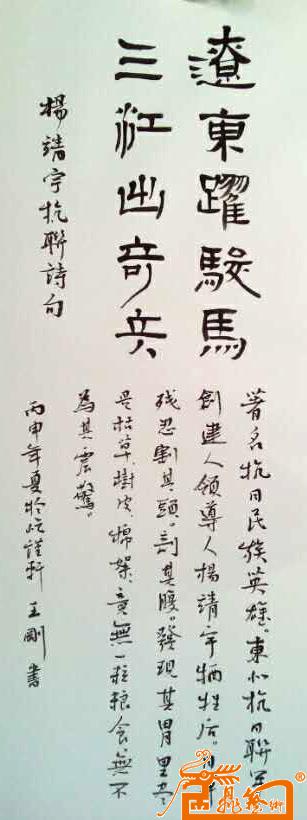 遼東躍駿馬
三江出奇兵
楊靖宇抗聯詩句
著名抗日民族英雄。東北抗日聯軍
創建人領導人楊靖宇犧牲后。日軍
残忍割其頭。剖其腹。發現其胃里尽
是枯草樹皮棉絮。竟無一粒粮食無不
為其震驚。
丙申年夏於 謹軒 王剛書